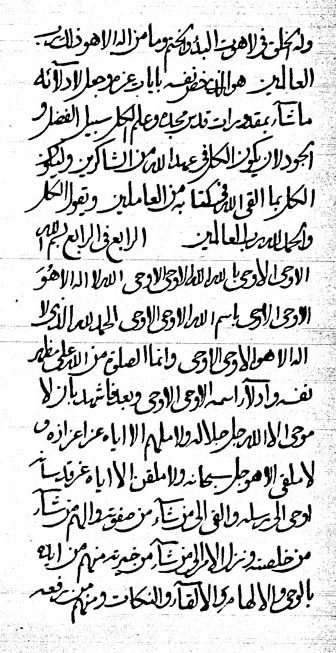 وله الخلق فى لاهوت البدء والختم وما من اله الا هو ذلك رب
العالمين هو الذى خص نفسه بايات عز موجل لادلائه
ما شاء بمقدورات قدير مجده وعلم الكل سبيل الفضل و
الجود لان يكون الكل فى عهد الله من الشاكرين وليكونن
الكل بما القى الله فى كتابه من العاملين ويقول الكل
والحمد لله رب العالمين الرابع فى الرابع بسم الله
الاوحى الاوحى بالله الله الاوحى الاوحى الله لا اله الا هو
الاوحى الاوحى باسم الله الاوحى الاوحى الحمد لله الذى لا
اله الا هو الاوحى الاوحى وانما الصلوة من الله على مظهر
نفسه وادلاء اسمه الاوحى الاوحى وبعد فاشهد بان لا
موحى الا الله جل جلاله ولا ملهم الا اياه عز اعزازه و
لا ملقى الا هو جل سبحانه ولا ملقن الا اياه عز قدسانه
اوحى الى رسله والقى الى من شاء من صفوته والهم من شاء
من خلصته ونزل الامر الى من شاء من خيرته منهم من ايده
بالوحى والالهام والالقاء والنكات ومنهم من رفعه